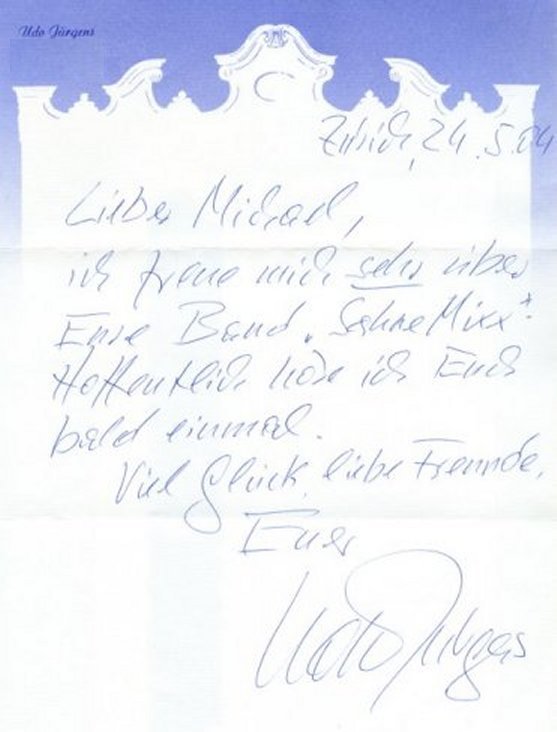 Udo Jürgens
Zürich, 24.5.04
Lieber Michael,
ich freue mich sehr über
Eure Band „SahneMixx“.
Hoffentlich höre ich Euch
bald einmal.
Viel Glück, liebe Freunde,
Euer
Udo Jürgens